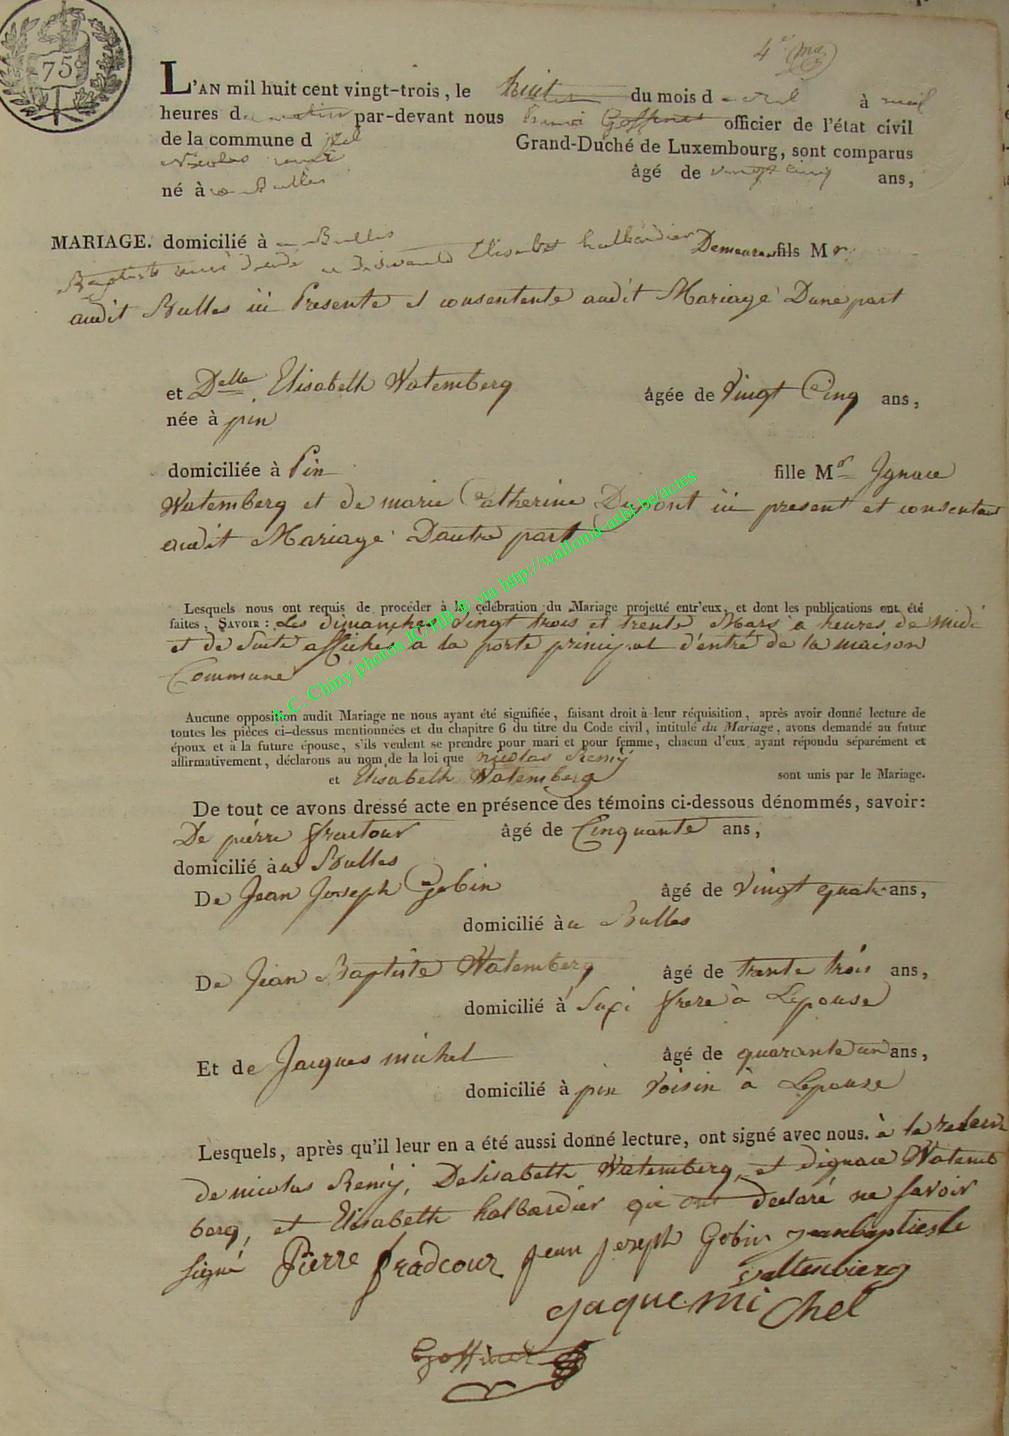 75
4e
L'AN mil huit cent vingt-trois, le huit du mois d avril à
heures du matin par-devant nous Goffinet officier de l'état civil
de la commune d
Grand-Duché de Luxembourg, sont comparus
Nicolas remi âgé de vingt cinq ans,
né à Bulles
MARIAGE. domicilié à Bulles
Baptiste Elisabet halbardier Demeurant fils Mr
audit Bulles ici Presente et consentente audit Mariage Dune part
et Delle Elisabeth Watemberg âgée de Vingt Cinq ans,
née à pin
domiciliée à Pin fille Mr Jgnace
Watemberg et de marie Catherine Dupont ici present et consentant
audit Mariage Dautre part
Lesquels nous ont requis de procéder à la célébration du Mariage projetté entr'eux, et dont les publications ont été
faites, SAVOIR : Les dimanches Vingt trois et trente Mars a heures de midi
et de Suite affiches a la porte principal d'entré de la maison
Commune
Aucune opposition audit Mariage ne nous ayant été signifiée, faisant droit à leur réquisition, après avoir donné lecture de
toutes les pièces ci-dessus mentionnées et du chapitre 6 du titre du Code civil, intitulé du Mariage, avons demandé au futur
époux et à la future épouse, s'ils veulent se prendre pour mari et pour femme, chacun d'eux ayant répondu séparément et
affirmativement, déclarons au nom de la loi que nicolas Remÿ
et Elisabeth Watemberg sont unis par le Mariage.
De tout ce avons dressé acte en présence des témoins ci-dessous dénommés, savoir:
De pierre âgé de Cinquante ans,
domicilié à Bulles
De Jean Joseph Gobin âgé de vingt quatre ans,
domicilié à Bulles
De Jean Baptiste Watemberg âgé de trente trois ans,
domicilié à Suxi frere à Lepouse
Et de Jacques michel âgé de quarante un ans,
domicilié à pin voisin à Lepouse
Lesquels, après qu'il leur en a été aussi donné lecture, ont signé avec nous. à la
de nicolas Remÿ, Delisabeth Watemberg, et dignace Watem
berg, et Elisabeth halbardier qui ont declaré ne savoir
signé Pierre fradcour jean joseph Gobin jean baptieste
valtenbierg
jaque michel
Goffinet
A.C. Chiny photos IC/HB © via http://wallonia-asbl.be/actes